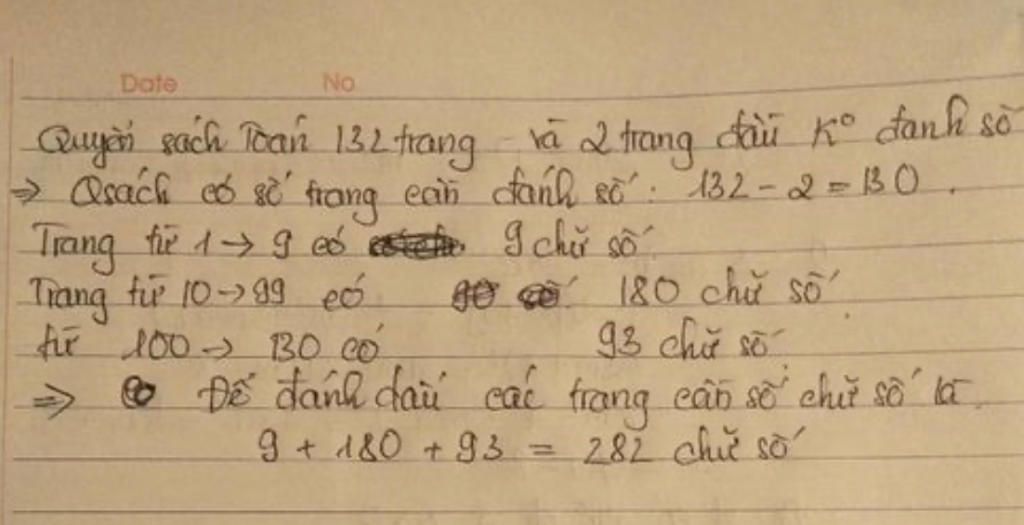 Date No
Quyển sách Toán 132 trang và 2 trang đầu K° đánh số
=> Qsách có số trang cần đánh số: 132 - 2 = 130.
Trang từ 1 → 9 có 9 chữ số
Trang từ 10 → 99 có 180 chữ số
từ 100 → 130 có 93 chữ số
=> Để đánh dấu các trang cần số chữ số là
9 + 180 + 93 = 282 chữ số